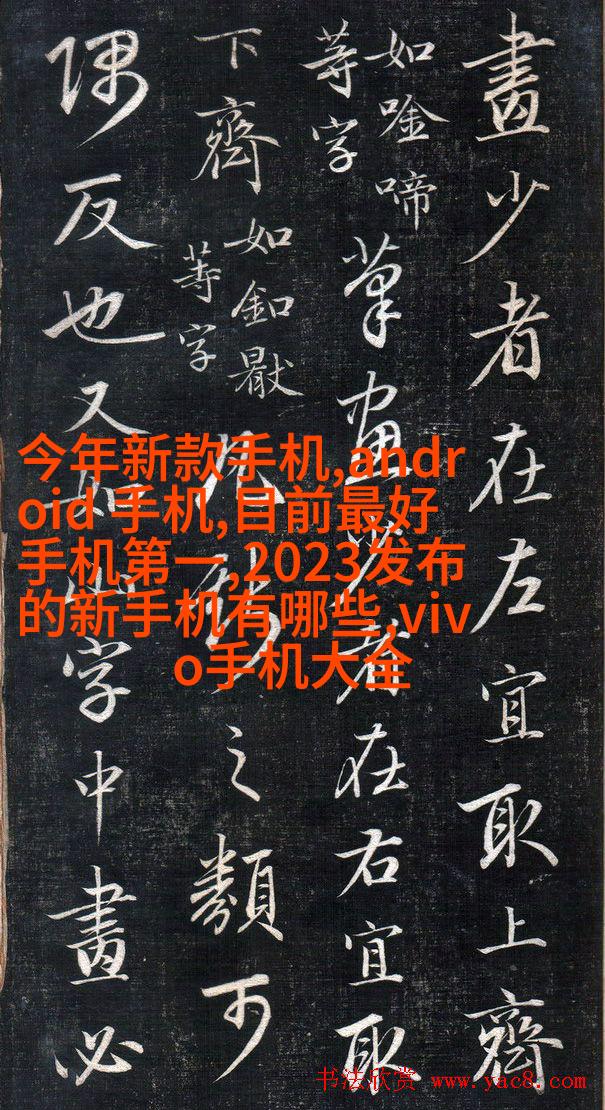 畫少者在左宜取上齊
如唫啼
等字
筆畫少者在右宜取
下齊
如釦
等字
凡之類可
隅反也又如山字中畫必
今年新款手机,andr
oid 手机,目前最好
手机第一,2023发布
的新手机有哪些,viv
o手机大全
书法欣赏 www.yac8.com